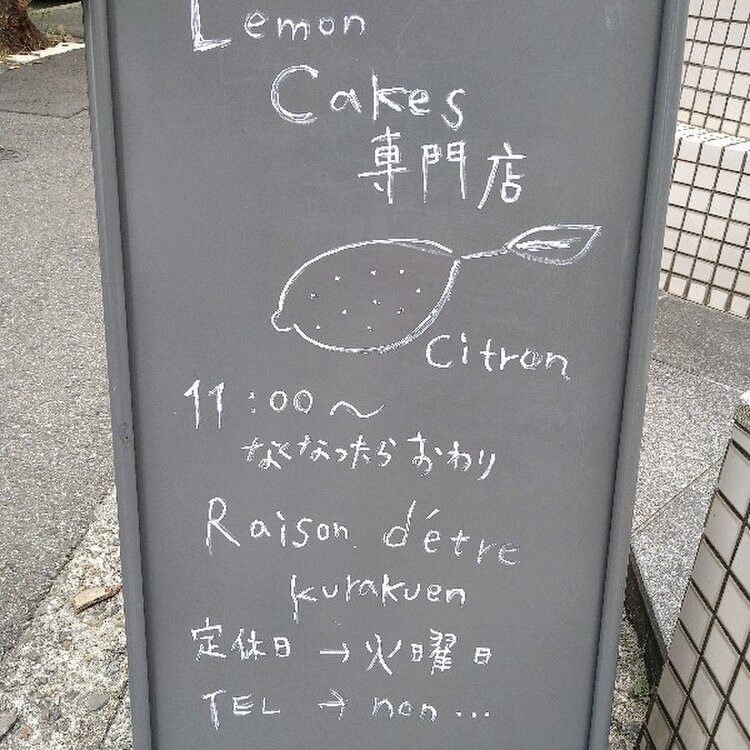 Lemon
Cakes
専門店
Citron
11:00〜
なくなったらおわり
Raison d'étre
kurakuen
定休日 → 火曜日
TEL → non...